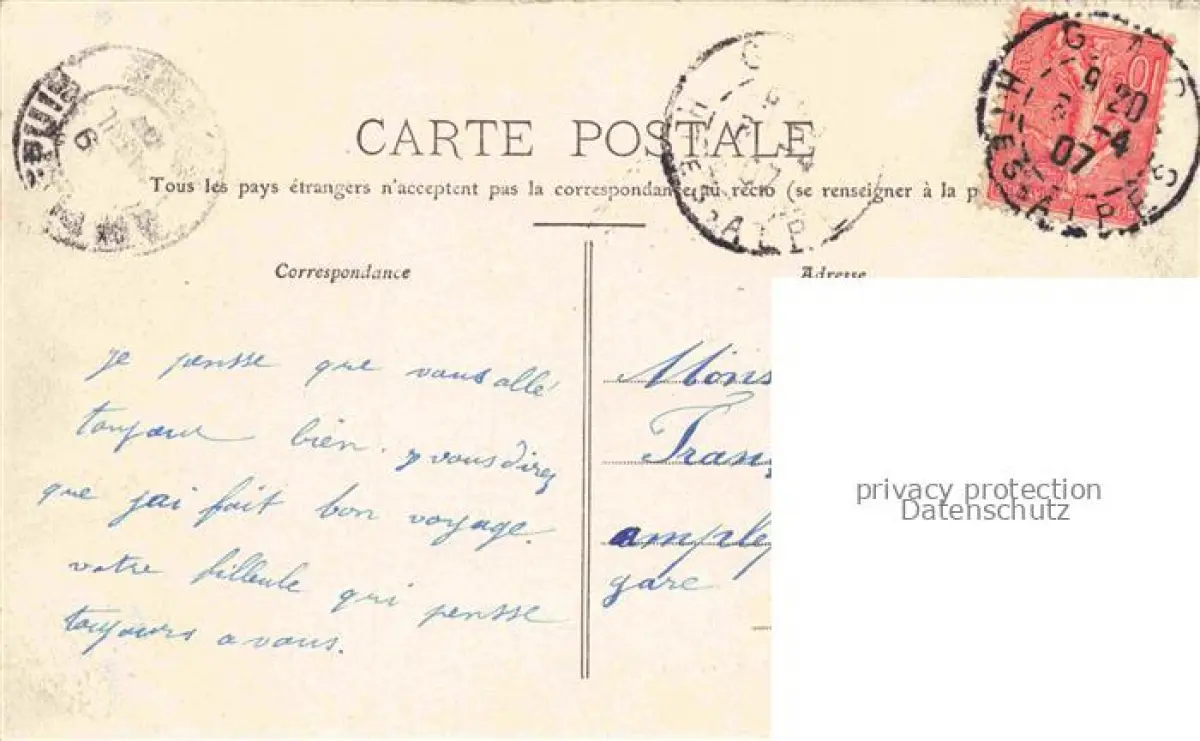 CARTE POSTALE
Tous les pays étrangers n'acceptent pas la correspondance au recto (se renseigner à la p
Correspondance
Adresse
je pensse que vous allé
toujour bien. y vous direz
que jai fait bon voyage.
votre filleule qui pensse
toujours a vous.
Mons
Franç
amplep
gare
GAP
9 20
-4
07
HTES ALPES
10
privacy protection
Datenschutz